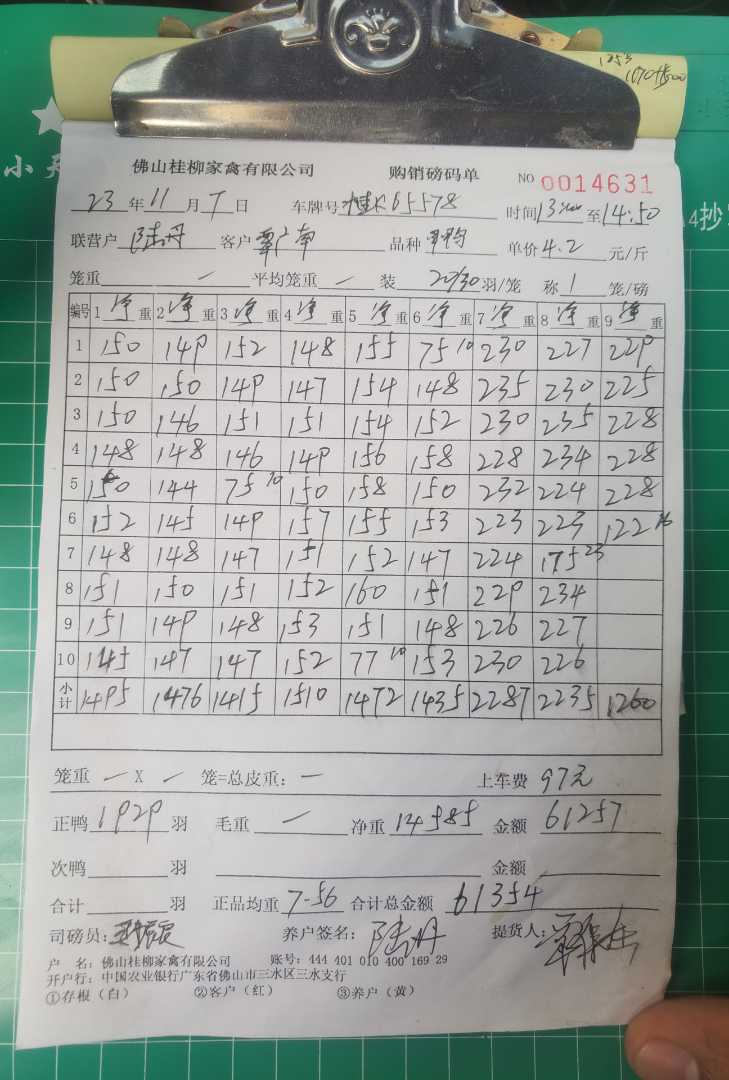 1253
小天
佛山桂柳家禽有限公司 购销磅码单 NO 0014631
23 年 11 月 7 日 车牌号 桂K65578 时间 13 至 14:50
联营户 陆丹 客户 覃广南 品种 单价 4.2 元/斤
笼重 一 平均笼重 一 装 22/30 羽/笼 称 1 笼/磅
编号 1 净重 2 净重 3 净重 4 净重 5 净重 6 净重 7 净重 8 净重 9 净重
1 150 149 152 148 155 75 10 230 227 229
2 150 150 149 147 154 148 235 230 225
3 150 146 151 151 154 152 230 235 228
4 148 148 146 149 156 158 228 234 228
5 150 144 75 10 150 158 150 232 224 228
6 152 145 149 157 155 153 223 223 122 16
7 148 148 147 151 152 147 224 175 23
8 151 150 151 152 160 151 229 234
9 151 149 148 153 151 148 226 227
10 145 147 147 152 77 10 153 230 226
小计 1495 1476 1415 1510 1472 1435 2287 2235 1260
笼重 一 X 一 笼=总皮重: 一 上车费 97元
正鸭 1929 羽 毛重 一 净重 14585 金额 61257
次鸭 羽 金额
合计 羽 正品均重 7-56 合计总金额 61354
司磅员: 养户签名: 陆丹 提货人:
户 名: 佛山桂柳家禽有限公司 账号: 444 401 010 400 169 29
开户行: 中国农业银行广东省佛山市三水区三水支行
①存根(白) ②客户(红) ③养户(黄)
4抄